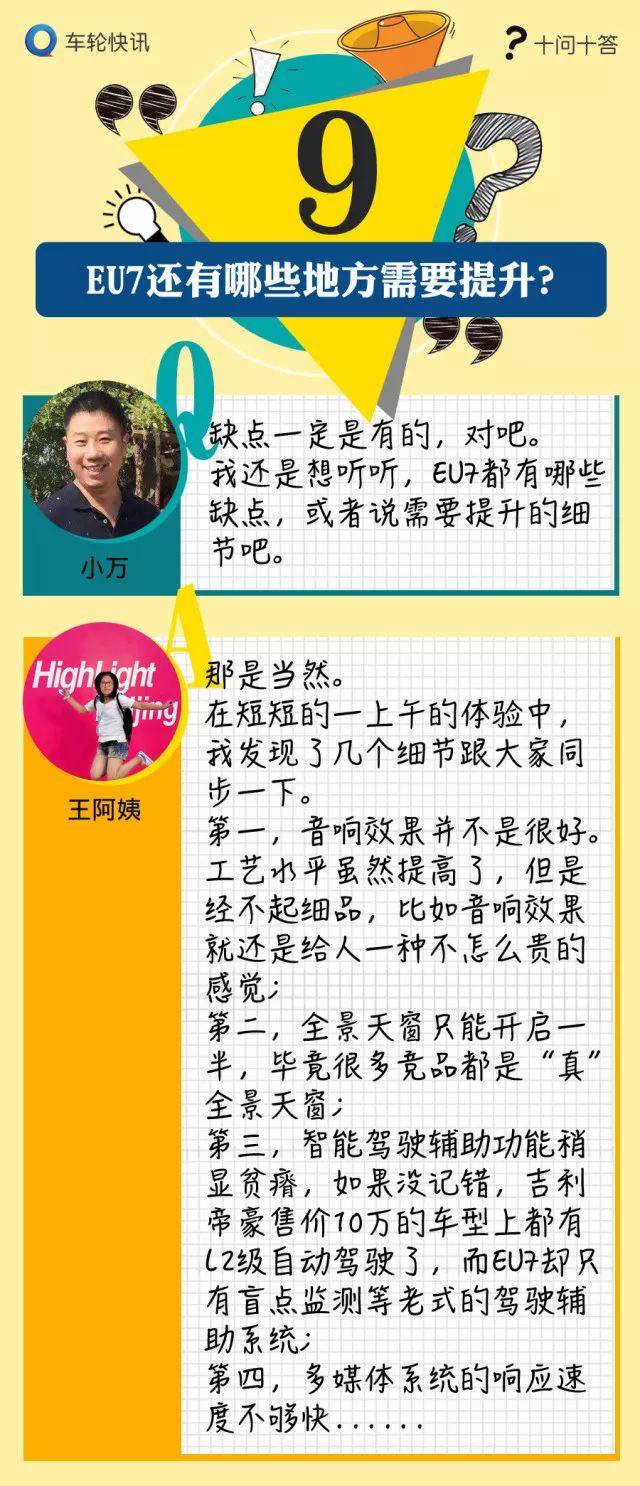 车轮快讯
十问十答
9
EU7还有哪些地方需要提升?
Q
缺点一定是有的，对吧。
我还是想听听，EU7都有哪些
缺点，或者说需要提升的细
节吧。
小万
A
HighLight
jing
王阿姨
那是当然。
在短短的一上午的体验中，
我发现了几个细节跟大家同
步一下。
第一，音响效果并不是很好。
工艺水平虽然提高了，但是
经不起细品，比如音响效果
就还是给人一种不怎么贵的
感觉；
第二，全景天窗只能开启一
半，毕竟很多竞品都是“真”
全景天窗；
第三，智能驾驶辅助功能稍
显贫瘠，如果没记错，吉利
帝豪售价10万的车型上都有
L2级自动驾驶了，而EU7却只
有盲点监测等老式的驾驶辅
助系统；
第四，多媒体系统的响应速
度不够快......